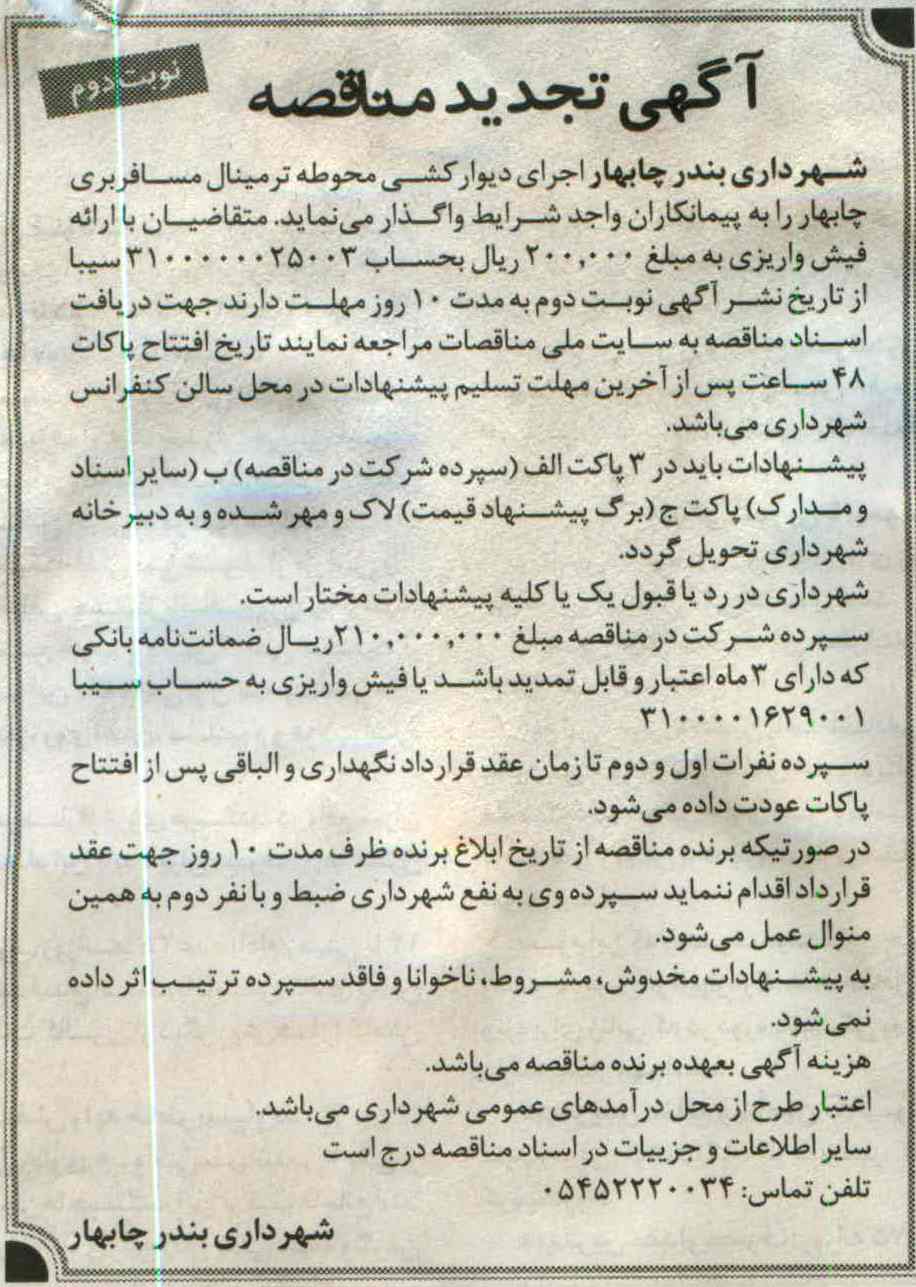 نوبت دوم
آگهی تجدید مناقصه
شهرداری بندر چابهار اجرای دیوارکشی محوطه ترمینال مسافربری
چابهار را به پیمانکاران واجد شرایط واگذار می‌نماید. متقاضیان با ارائه
فیش واریزی به مبلغ ۲۰۰,۰۰۰ ریال بحساب ۳۱۰۰۰۰۰۰۲۵۰۰۳ سیبا
از تاریخ نشر آگهی نوبت دوم به مدت ۱۰ روز مهلت دارند جهت دریافت
اسناد مناقصه به سایت ملی مناقصات مراجعه نمایند تاریخ افتتاح پاکات
۴۸ ساعت پس از آخرین مهلت تسلیم پیشنهادات در محل سالن کنفرانس
شهرداری می‌باشد.
پیشنهادات باید در ۳ پاکت الف (سپرده شرکت در مناقصه) ب (سایر اسناد
و مدارک) پاکت ج (برگ پیشنهاد قیمت) لاک و مهر شده و به دبیرخانه
شهرداری تحویل گردد.
شهرداری در رد یا قبول یک یا کلیه پیشنهادات مختار است.
سپرده شرکت در مناقصه مبلغ ۲۱۰,۰۰۰,۰۰۰ریال ضمانت‌نامه بانکی
که دارای ۳ ماه اعتبار و قابل تمدید باشد یا فیش واریزی به حساب سیبا
۳۱۰۰۰۰۱۶۲۹۰۰۱
سپرده نفرات اول و دوم تا زمان عقد قرارداد نگهداری و الباقی پس از افتتاح
پاکات عودت داده می‌شود.
در صورتیکه برنده مناقصه از تاریخ ابلاغ برنده ظرف مدت ۱۰ روز جهت عقد
قرارداد اقدام ننماید سپرده وی به نفع شهرداری ضبط و با نفر دوم به همین
منوال عمل می‌شود.
به پیشنهادات مخدوش، مشروط، ناخوانا و فاقد سپرده ترتیب اثر داده
نمی‌شود.
هزینه آگهی بعهده برنده مناقصه می‌باشد.
اعتبار طرح از محل درآمدهای عمومی شهرداری می‌باشد.
سایر اطلاعات و جزییات در اسناد مناقصه درج است
تلفن تماس: ۰۵۴۵۲۲۲۰۰۳۴
شهرداری بندر چابهار